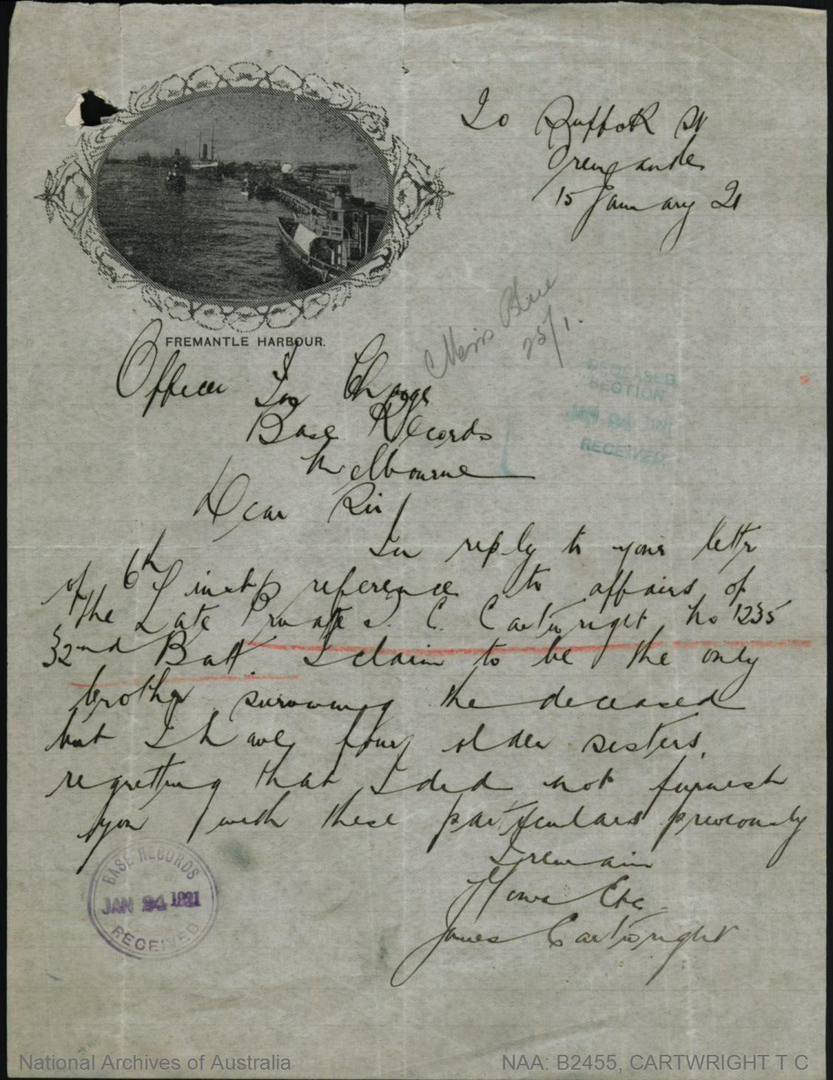 20 Suffolk St
Fremantle
15 January 21
FREMANTLE HARBOUR.
Miss Blue
25/1.
Officer In Charge
Base Records
Melbourne
DECEASED
SECTION
RECEIVED
Dear Sir/
In reply to your letter
of 6th inst reference to affairs of
the Late Private T. C. Cartwright No 1235
32nd Batt. I claim to be the only
brother surviving the deceased
but I have four older sisters.
regretting that I did not furnish
you with these particulars previously
I remain
Yours Etc
James Cartwright
BASE RECORDS
JAN 24 1921
RECEIVED
National Archives of Australia
NAA: B2455, CARTWRIGHT T C